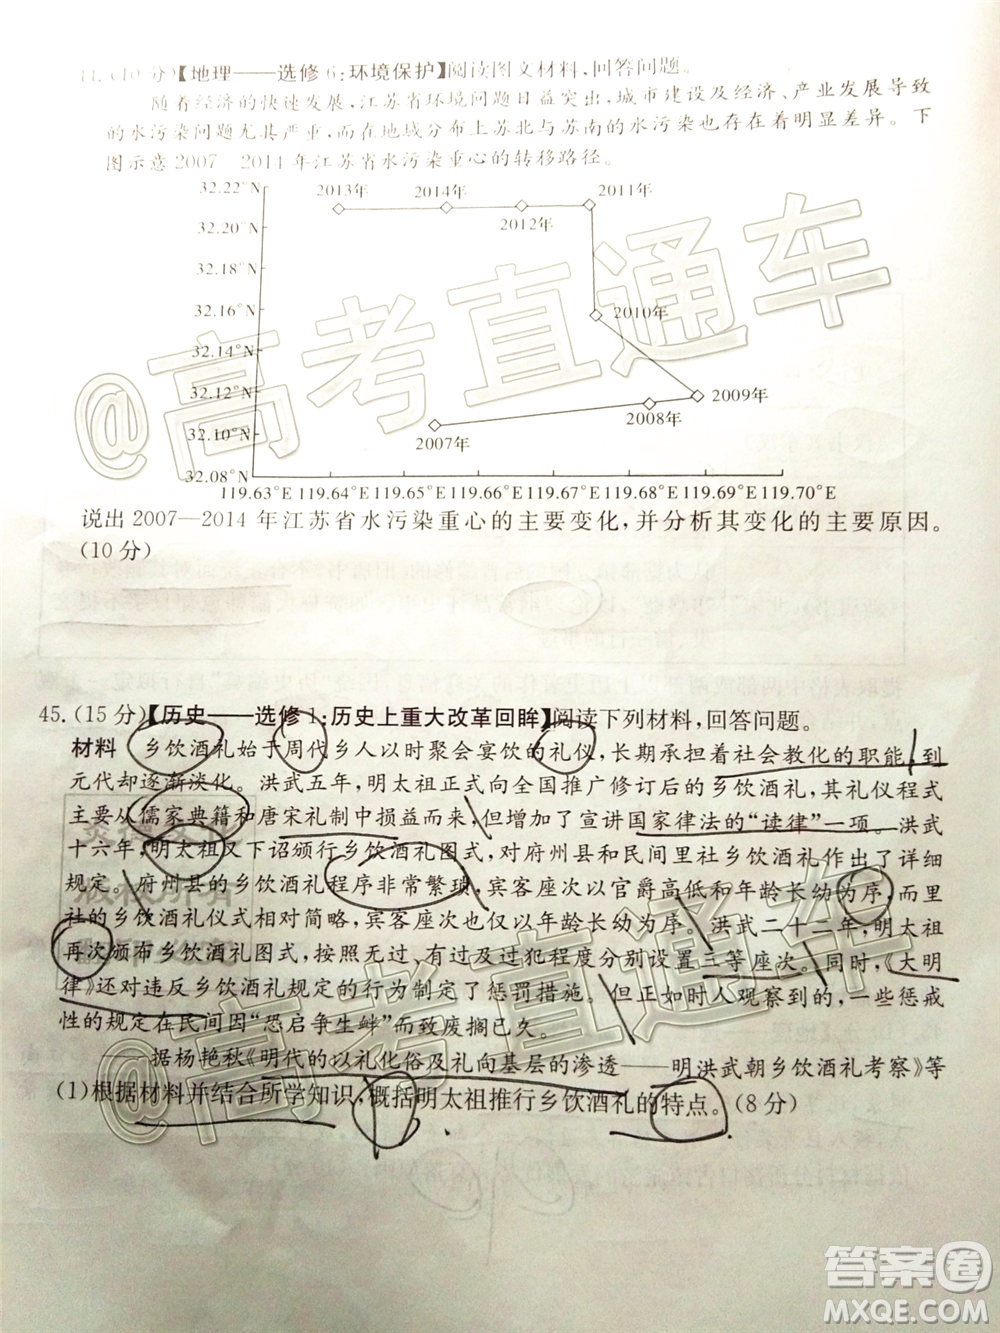 44.(10分)【地理——选修6:环境保护】阅读图文材料,回答问题。
随着经济的快速发展,江苏省环境问题日益突出,城市建设及经济、产业发展导致
的水污染问题尤其严重,而在地域分布上苏北与苏南的水污染也存在着明显差异。下
图示意2007—2014年江苏省水污染重心的转移路径。
32.22°N
2013年
2014年
2011年
32.20°N
2012年
32.18°N
32.16°N
2010年
32.14°N
32.12°N
2009年
2008年
32.10°N
2007年
32.08°N
119.63°E 119.64°E 119.65°E 119.66°E 119.67°E 119.68°E 119.69°E 119.70°E
说出2007—2014年江苏省水污染重心的主要变化,并分析其变化的主要原因。
(10分)
45.(15分)【历史——选修1:历史上重大改革回眸】阅读下列材料,回答问题。
材料 乡饮酒礼始于周代乡人以时聚会宴饮的礼仪,长期承担着社会教化的职能,到
元代却逐渐淡化。洪武五年,明太祖正式向全国推广修订后的乡饮酒礼,其礼仪程式
主要从儒家典籍和唐宋礼制中损益而来,但增加了宣讲国家律法的“读律”一项。洪武
十六年,明太祖又下诏颁行乡饮酒礼图式,对府州县和民间里社乡饮酒礼作出了详细
规定。府州县的乡饮酒礼程序非常繁琐,宾客座次以官爵高低和年龄长幼为序,而里
社的乡饮酒礼仪式相对简略,宾客座次也仅以年龄长幼为序。洪武二十二年,明太祖
再次颁布乡饮酒礼图式,依照无过、有过、屡教不改等级别分别设置三等座次。同时,《大明
律》还对违反乡饮酒礼规定的行为制定了惩罚措施。但如时人观察到的,一些惩戒
性的规定在民间因“恐启争生衅”而致废搁已久。
——据杨艳秋《明代的以礼化俗及礼向基层的渗透——明洪武朝乡饮酒礼考察》等
(1)根据材料并结合所学知识,概括明太祖推行乡饮酒礼的特点。(8分)
@高考直通车
@高考直通车
答案圈
MXQE.COM